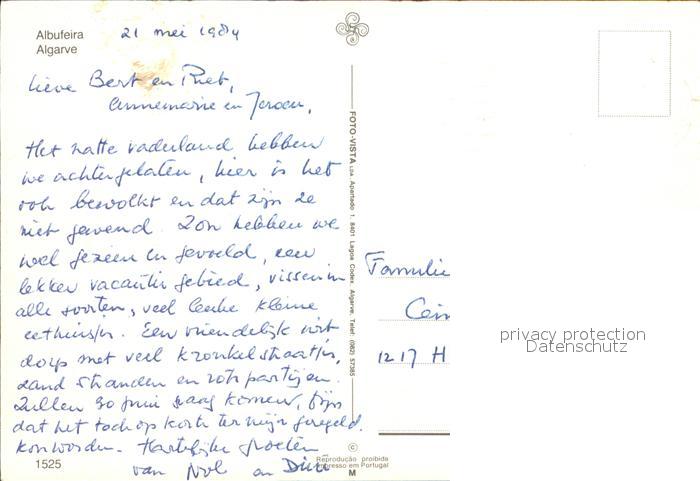 Albufeira
Algarve
21 mei 1984
Lieve Bert en Riet,
Annemarie en Jeroen,
Het natte vaderland hebben
we achtergelaten, hier is het
ook bewolkt en dat zijn ze
niet gewend. Zon hebben we
wel gezien en gevoeld, een
lekker vacantie gebied, vissen in
alle soorten, veel leuke kleine
eethuisjes. Een vriendelijk wit
dorp met veel kronkelstraatjes,
zand stranden en rotspartijen.
Zullen 30 juni graag komen, fijn
dat het toch op korte termijn geregeld
kon worden. Hartelijke groeten
van Nol en
1525
FOTO-VISTA LDA. Apartado 1, 8401 Lagoa Codex, Algarve, Telef. (082) 57385
©
Reprodução proibida
Impresso em Portugal
M
Familie
1217 H
privacy protection
Datenschutz